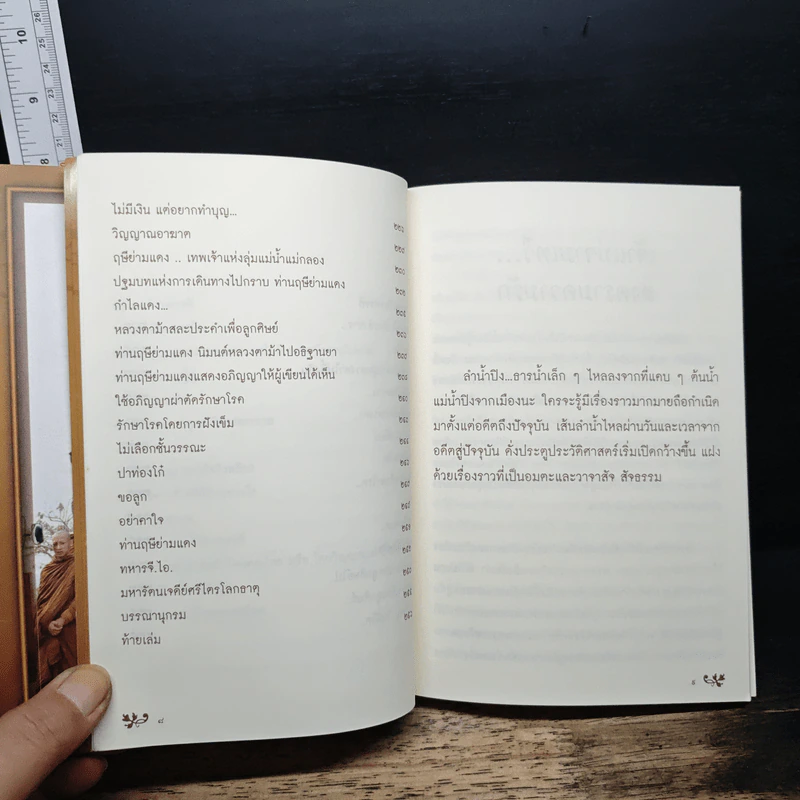 10
9
8
26
25
24
23
22
21
ไม่มีเงิน แต่อยากทำบุญ...
วิญญาณอาฆาต
ฤษีย่ามแดง .. เทพเจ้าแห่งลุ่มแม่น้ำแม่กลอง
ปฐมบทแห่งการเดินทางไปกราบ ท่านฤษีย่ามแดง
กำไลแดง...
หลวงตาม้าสละประคำเพื่อลูกศิษย์
ท่านฤษีย่ามแดง นิมนต์หลวงตาม้าไปอธิฐานยา
ท่านฤษีย่ามแดงแสดงอภิญญาให้ผู้เขียนได้เห็น
ใช้อภิญญาผ่าตัดรักษาโรค
รักษาโรคโดยการฝังเข็ม
ไม่เลือกชั้นวรรณะ
ปาท่องโก๋
ขอลูก
อย่าคาใจ
ท่านฤษีย่ามแดง
ทหารจี.ไอ.
มหารัตนเจดีย์ศรีไตรโลกธาตุ
บรรณานุกรม
ท้ายเล่ม
๘
ลำน้ำปิง...ธารน้ำเล็ก ๆ ไหลลงจากที่แคบ ๆ ต้นน้ำ
แม่น้ำปิงจากเมืองนะ ใครจะรู้มีเรื่องราวมากมายถือกำเนิด
มาตั้งแต่อดีตถึงปัจจุบัน เส้นลำน้ำไหลผ่านวันและเวลาจาก
อดีตสู่ปัจจุบัน ดั่งประตูประวัติศาสตร์เริ่มเปิดกว้างขึ้น แฝง
ด้วยเรื่องราวที่เป็นอมตะและวาจาสัจ สัจธรรม